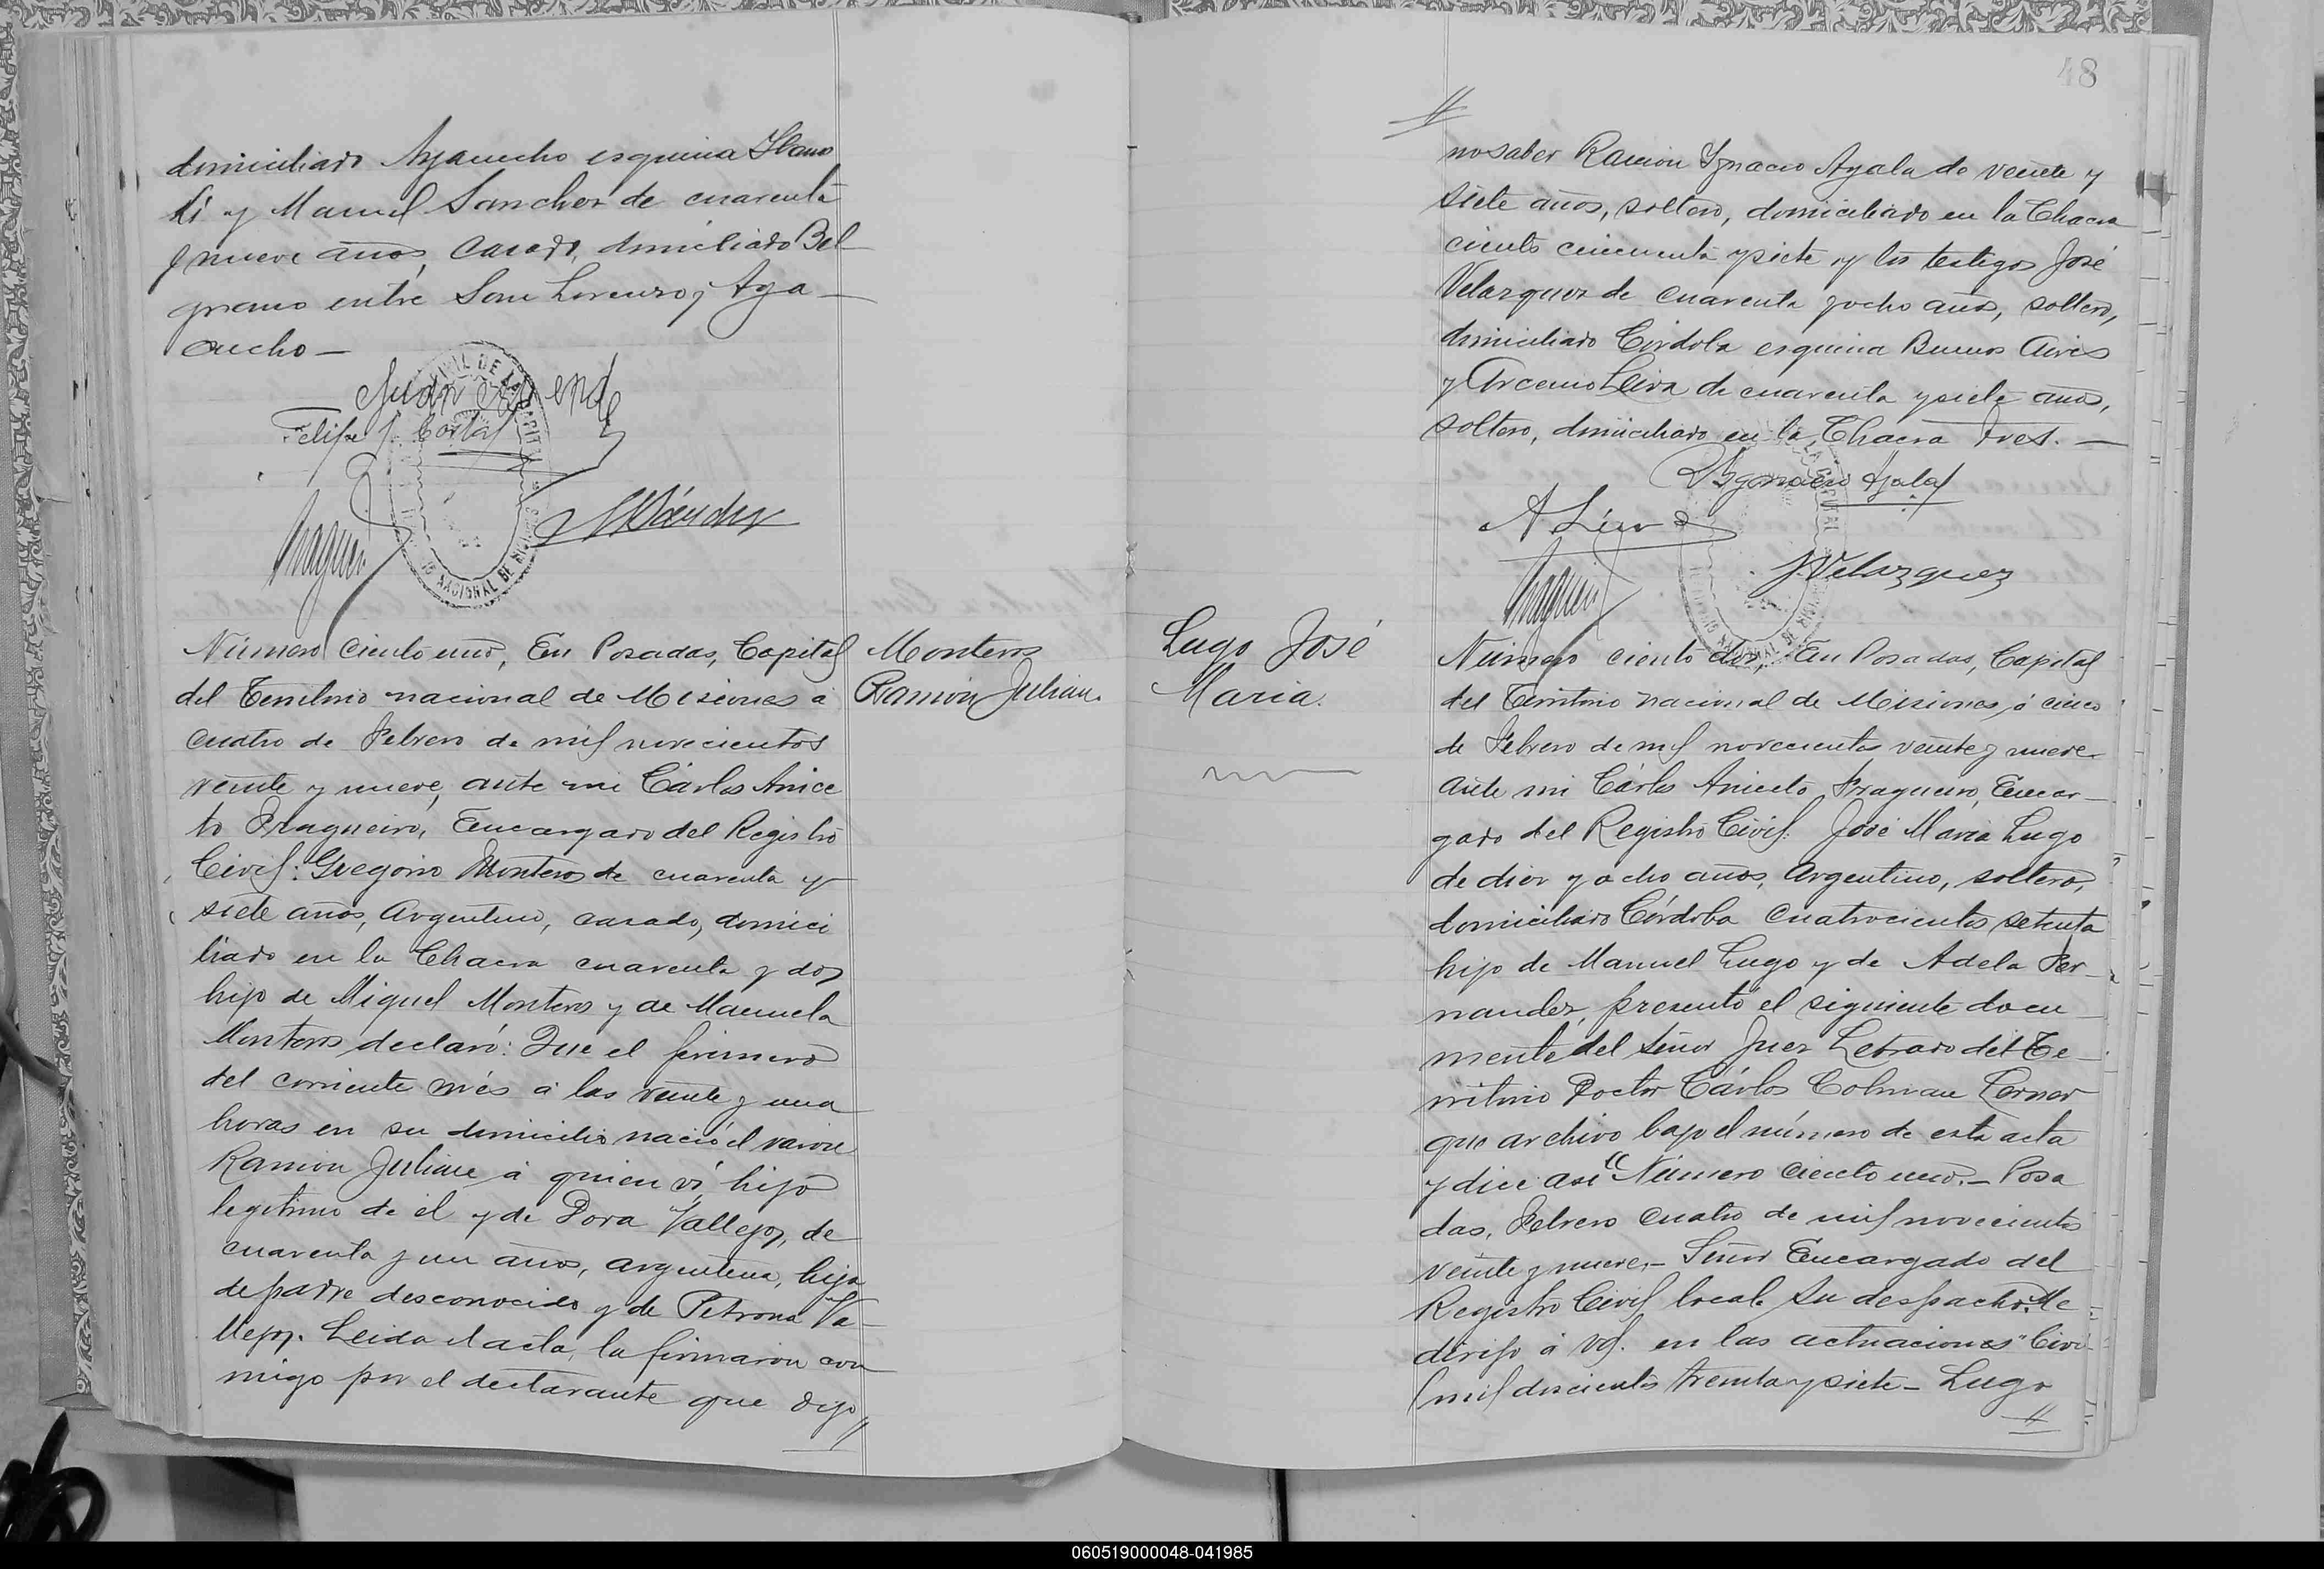 domiciliado Ayacucho esquina
y Manuel Sanchez de cuarenta
y nueve años, casado, domiciliado Bel
grano entre San Lorenzo y Aya
cucho —
Juan
Felipe J. Cortaz
CIVIL DE LA CAPITAL
NACIONAL DE MISIONES
Número ciento uno, En Posadas, Capital
del Territorio nacional de Misiones á
cuatro de Febrero de mil novecientos
veinte y nueve, ante mi Cárlos Anice
to Fragueiro, Encargado del Registro
Civil: Gregorio Monteros de cuarenta y
siete años, Argentino, casado, domici
liado en la Chacra cuarenta y dos
hijo de Miguel Monteros y de Manuela
Monteros declaró: Que el primero
del corriente més á las veinte y una
horas en su domicilio nació el varon
Ramón Julian á quien ví, hijo
legítimo de él y de Dora Vallejos, de
cuarenta y un años, argentina, hija
de padre desconocido y de Petrona Va-
llejos. Leida el acta, la firmaron con
migo por el declarante que dijo //
Monteros
Ramón Julian.
48
//
no saber Ramón Ignacio Ayala de veinte y
siete años, soltero, domiciliado en la Chacra
ciento cincuenta y siete y los testigos José
Velazquez de cuarenta y ocho años, soltero,
domiciliado Córdoba esquina Buenos Aires
y Arcenio Leiva de cuarenta y siete años,
soltero, domiciliado en la Chacra tres. —
R Ygnacio Ayala
A Leiva
J. Velazquez
Lugo José
Maria.
Número ciento dos, En Posadas, Capital
del Territorio nacional de Misiones, á cinco
de Febrero de mil novecientos veinte y nueve
ante mi Cárlos Aniceto Fragueiro, Encar-
gado del Registro Civil: José María Lugo
de diez y ocho años, Argentino, soltero,
domiciliado Córdoba cuatrocientos setenta
hijo de Manuel Lugo y de Adela Fer-
nandez, presentó el siguiente docu
mento del Señor Juez Letrado del Te-
rritorio Doctor Cárlos Colman Lerner
que archivo bajo el número de esta acta
y dice así "Número ciento uno. — Posa
das, Febrero cuatro de mil novecientos
veinte y nueve. — Señor Encargado del
Registro Civil local. Su despacho. Me
dirijo á Vd. en las actuaciones "Civil
mil doscientos treinta y siete — Lugo
//
060519000048-041985